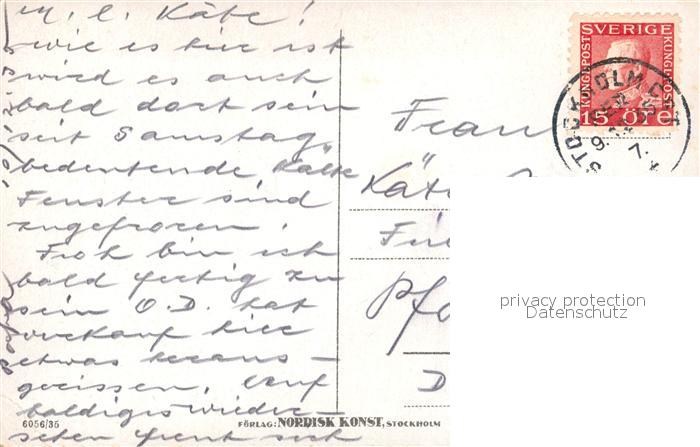 M. l. Käte!
wie es hier ist
wird es auch
bald dort sein
seit Samstag
bedeutende Kälte
Fenster sind
zugefroren.
Froh bin ich
bald fertig zu
sein O.D. hat
verkauf hier
etwas heraus-
gerissen. Auf
baldiges wieder-
sehen freut sich
6056/35
FÖRLAG: NORDISK KONST, STOCKHOLM
SVERIGE
KUNGL·POST
KUNGL·POST
15 ÖRE
STOCKHOLM
Frau
Käte
Pfo
D
privacy protection
Datenschutz